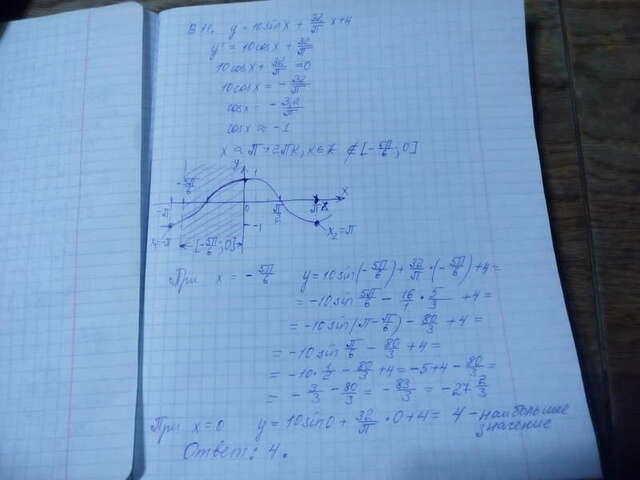 В 11. y = 10sinx + 32/π x + 4
y' = 10cosx + 32/π
10cosx + 32/π = 0
10cosx = - 32/π
cosx = - 3,2/π
cosx ≈ -1
x ≈ π + 2πk, k∈Z ∉ [-5π/6; 0]
y 1
-5π/6 x
-π 0 π/2 π
-1
x₁=-π [-5π/6; 0] x₂=π
При x = - 5π/6 y = 10sin(-5π/6) + 32/π · (-5π/6) + 4 =
= -10sin 5π/6 - 16/1 · 5/3 + 4 =
= -10sin(π - π/6) - 80/3 + 4 =
= -10sin π/6 - 80/3 + 4 =
= -10 · 1/2 - 80/3 + 4 = -5 + 4 - 80/3 =
= - 3/3 - 80/3 = - 83/3 = -27 2/3
При x=0 y = 10sin0 + 32/π · 0 + 4 = 4 - наибольшее
значение
Ответ: 4.